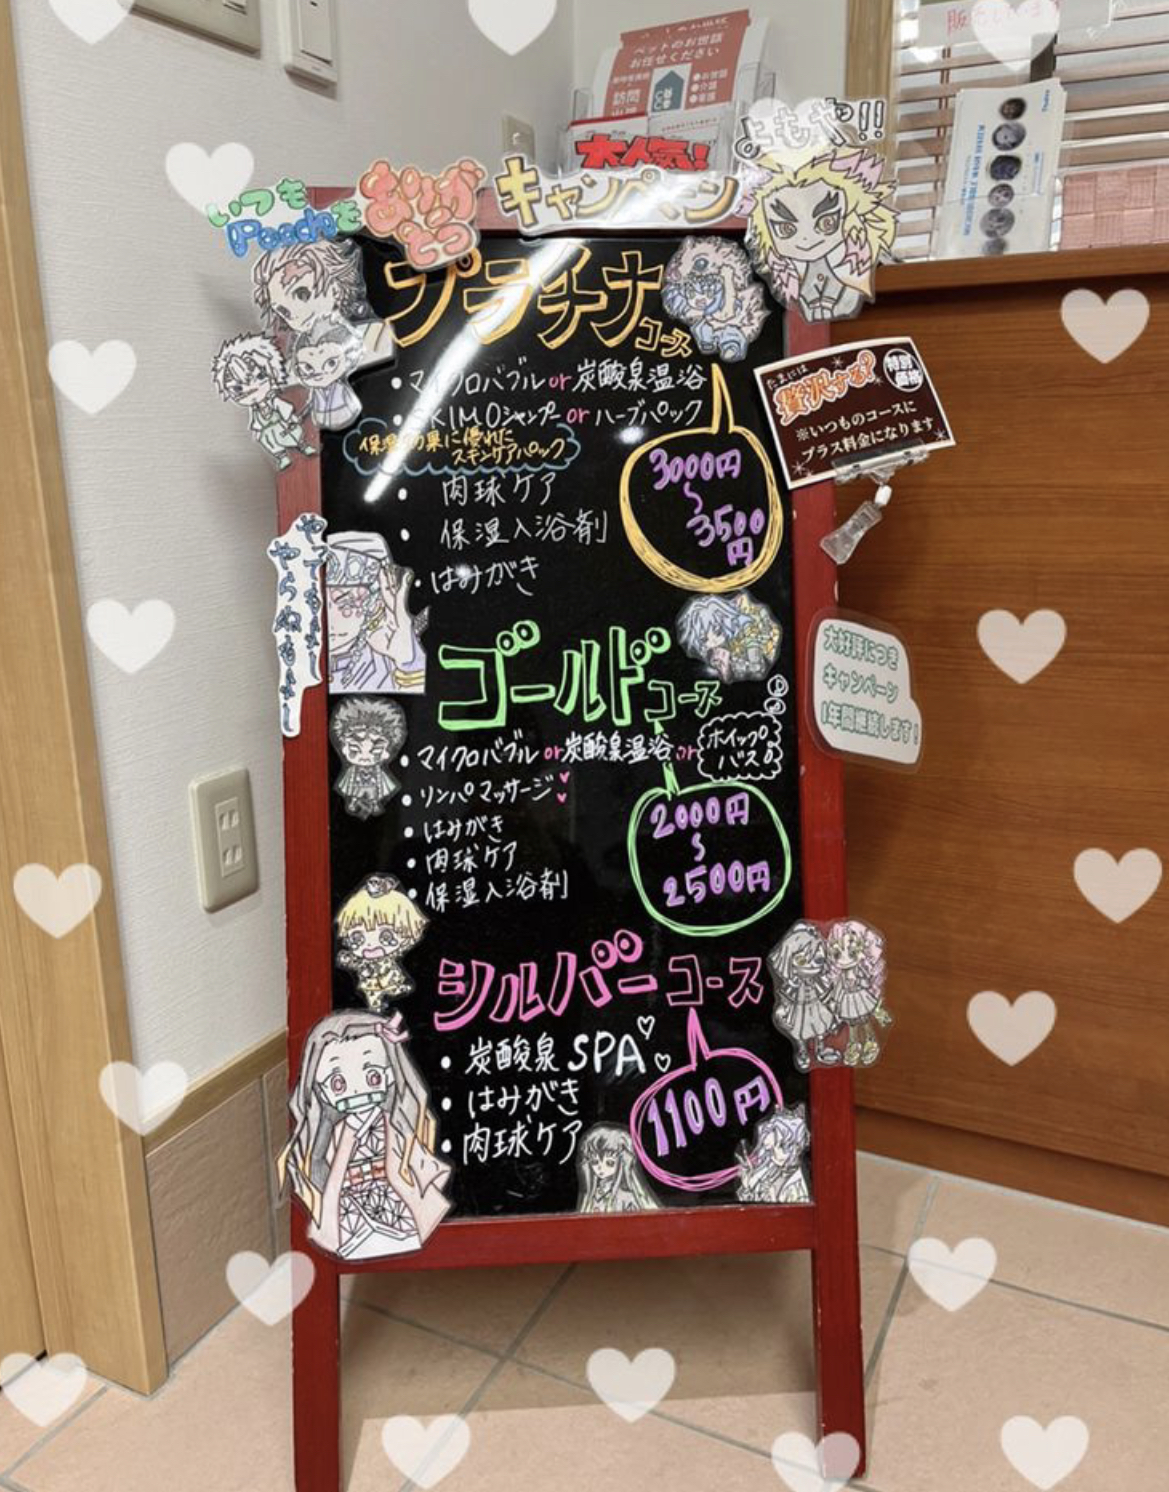 ペットのお世話
お任せください
訪問
大人気!
よもや!!
いつも
Peachを
ありがとう
キャンペーン
プラチナコース
・マイクロバブル or 炭酸泉温浴
・SKIMOシャンプー or ハーブパック
保湿効果に優れた
スキンケアパック
・肉球ケア
・保湿入浴剤
・はみがき
3000円
〜
3500
円
たまには
贅沢する?
特別
価格
※いつものコースに
プラス料金になります
ゴールドコース
・マイクロバブル or 炭酸泉温浴 or ホイップ
バス♪
・リンパマッサージ
・はみがき
・肉球ケア
・保湿入浴剤
2000円
〜
2500円
大好評につき
キャンペーン
1年間継続します!
シルバーコース
・炭酸泉SPA♡
・はみがき
・肉球ケア
1100円